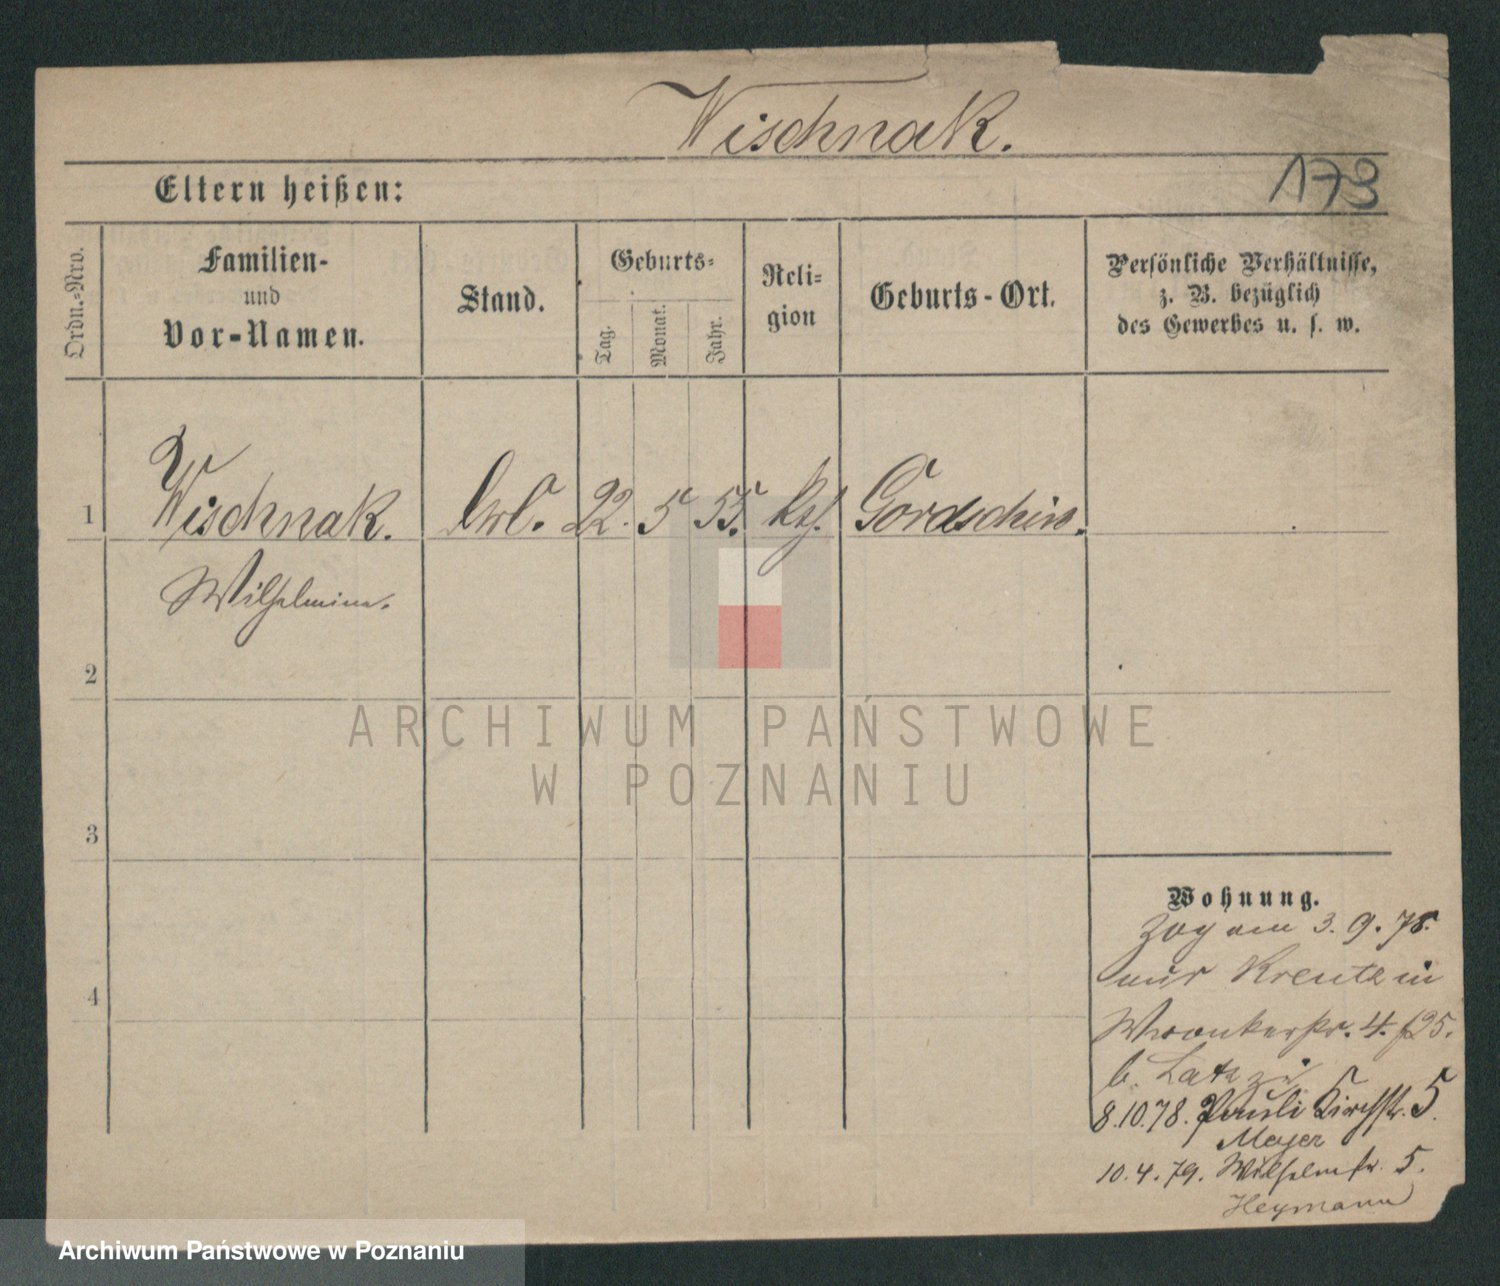 Wischnak.
173
Eltern heißen:
Ordn.-Nro.
Familien-
und
Vor-Namen.
Stand.
Geburts-
Tag.
Monat.
Jahr.
Reli-
gion
Geburts-Ort.
Persönliche Verhältnisse,
z. B. bezüglich
des Gewerbes u. s. w.
1 Wischnak. 22. 5 55. Gordschin.
Wilhelmine.
2
3
4
ARCHIWUM PAŃSTWOWE
W POZNANIU
Wohnung.
Zog am 3. 9. 78.
Wronkerstr. 4.
b. Latz
8.10.78. Pauli Kirchstr. 5.
Majer
10.4.79. Wilhelmstr. 5.
Heymann
Archiwum Państwowe w Poznaniu